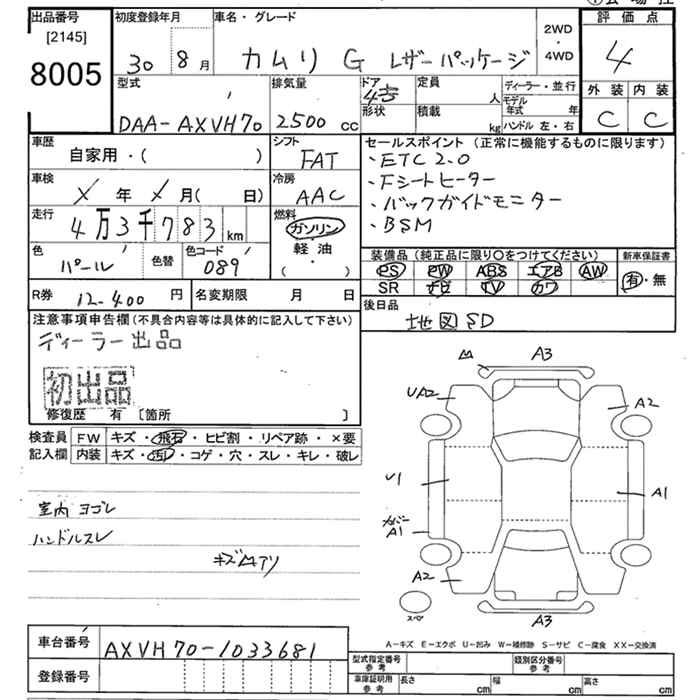 出品番号 初度登録年月 車名・グレード 評価点
[2145]
8005
30 8月 カムリ G レザーパッケージ 2WD ・ 4WD 4
型式 排気量 ドア 定員 ディーラー・並行 外装 内装
DAA-AXVH70 2500 cc 4 人 モデル年式 年 C C
形状 積載 kg ハンドル 左・右
車歴 自家用・( ) シフト FAT
セールスポイント (正常に機能するものに限ります)
・ETC2.0
・Fシートヒーター
・バックガイドモニター
・BSM
車検 X 年 X 月( 日) 冷房 AAC
走行 4万3千783 km 燃料 ガソリン
軽油
( ・ )
色 パール 色替 色コード 089
装備品 (純正品に限り○をつけてください) 新車保証書
PS PW ABS エアB AW 有・無
SR ナビ TV カワ
R券 12-400 円 名変期限 月 日
後日品
地図SD
注意事項申告欄(不具合内容等は具体的に記入して下さい)
ディーラー出品
初出品
修復歴 有 [箇所 ]
検査員 FW キズ・飛石・ヒビ割・リペア跡・×要
記入欄 内装 キズ・汚レ・コゲ・穴・スレ・キレ・破レ
室内ヨゴレ
ハンドルスレ
キズ凹アリ
A3
UA2 A2
U1 A1
カバー
A1
A2
スペア A3
A-キズ E-エクボ U-凹み W-補修跡 S-サビ C-腐食 XX-交換済
車台番号 AXVH70-1033681
登録番号
型式指定番号 参考 類別区分番号 参考
車庫証明用 参考 長さ cm 幅 cm 高さ cm